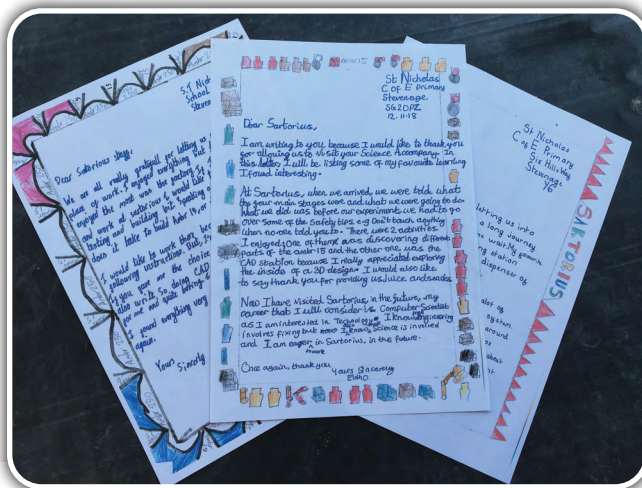 S.T Nich
School
Steve
Dear Sartorius staff,
We are all really gratefull our letting us
place of work. I enjoyed everything but
enjoyed the most was the
and work at sartorius I would like
testing and building but speaking
does it take to build
I would like to work their
following instructions. But,
if you gave me the choice
also write. So, doing CAD
for me and quite
I found everything very
again.
Yours Sincerly
St Nicholas
C of E Primary
Stevenage
SG2 0PZ
12.11.18
Dear Sartorius,
I am writing to you because I would like to thank you
for allowing us to visit your Science Accompany. In
this letter, I will be listing some of my favourite learning
I found interesting.
At Sartorius, when we arrived, we were told what
the your main stages were and what we were going to do.
what we did was before our experiments we had to go
over some of the Safety tips. e.g Don't touch anything
when no one told you to. There were 2 activities
I enjoyed; One of them was discovering different
parts of the ambr 15 and the other one was the
CAD station because I really appreciated exploring
the inside of a 3D design. I would also like
to say thank you for providing us Juice and snacks
Now I have visited Sartorius, in the future, my
career that I will consider is Computer Scientist
as I am interested in Technology. I know engineering
involves fixing but I know Science is involved
and I am eager to work in Sartorius, in the future.
Once again, thank you
Yours Sincerely
St Nicholas
C of E Primary
Six Hills Way
Stevenage
Y6
SARTORIUS
letting us into
a long journey
wait. My favourite
station
dispenser of
lot of
around
about